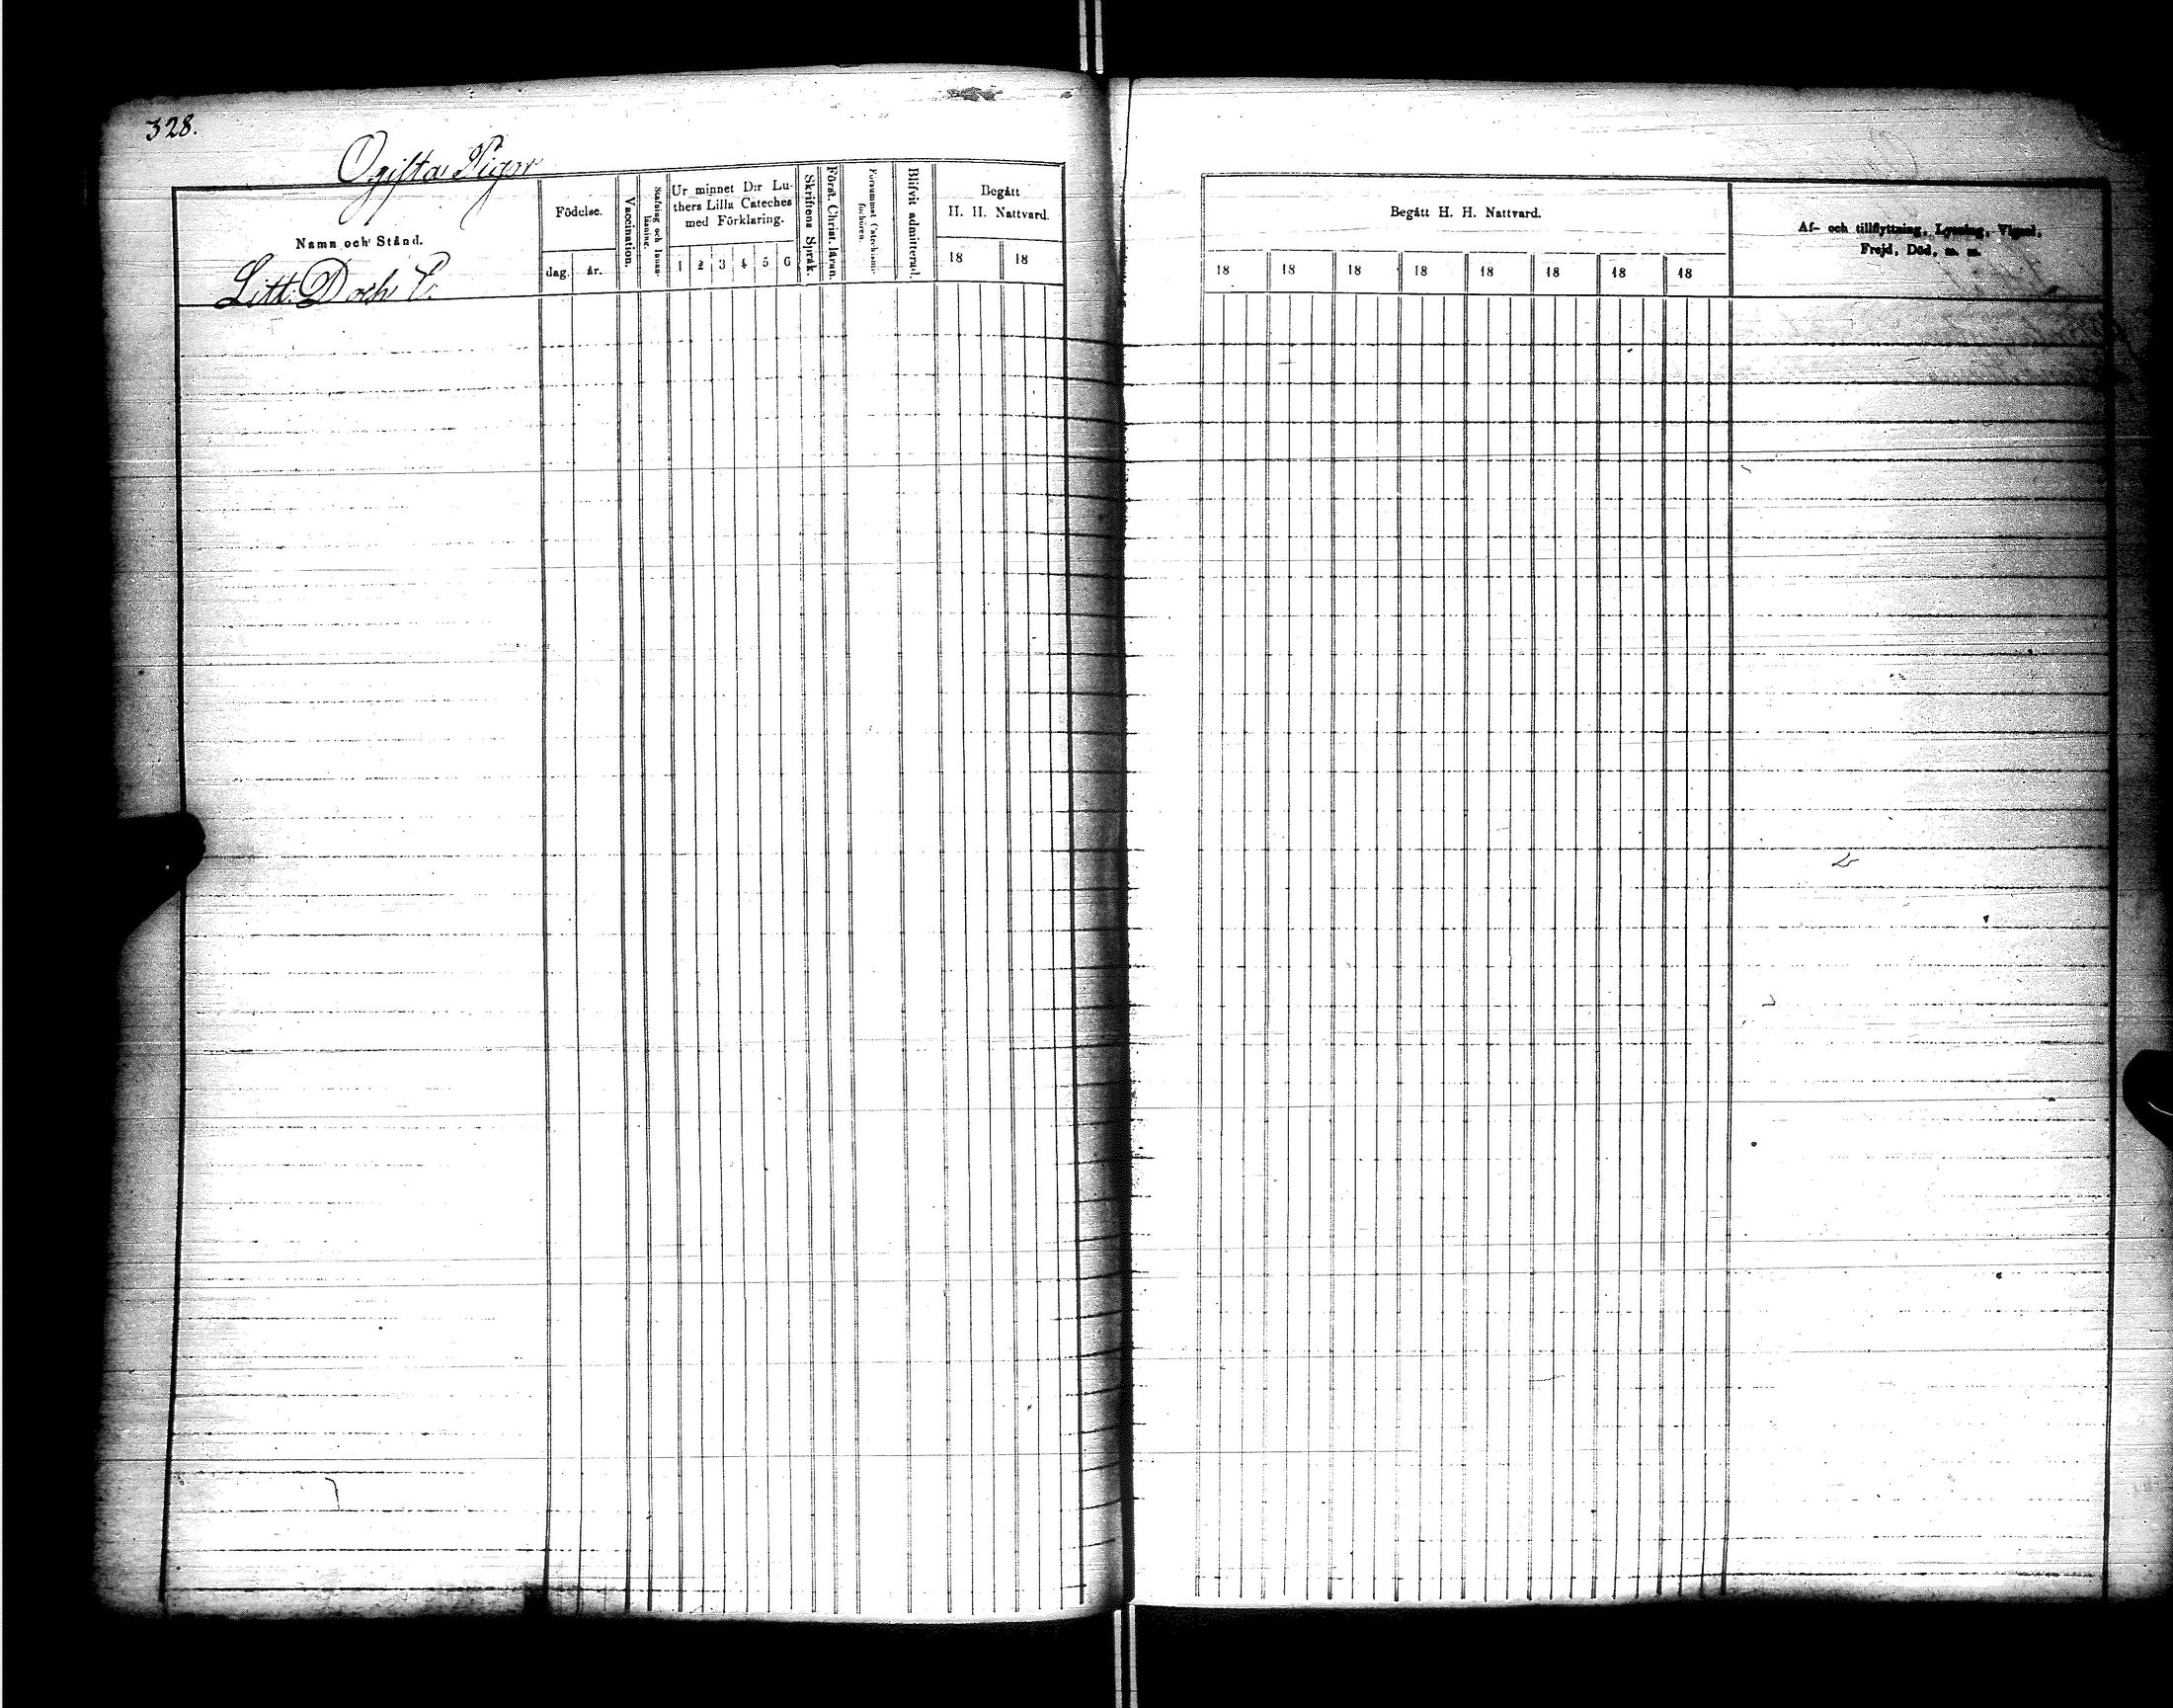 328.
Ogifta Pigor
Namn och Stånd.
Litt. D och
Födelse.
dag. år.
Vaccination.
Stafning och Innan-
läsning.
Ur minnet D:r Lu-
thers Lilla Cateches
med Förklaring.
1 2 3 4 5 6
Skriftens Språk.
Förståt. Christ. läran.
Försummat Catechismi-
förhören.
Blifvit admitterad.
Begått
H. H. Nattvard.
18 18
Begått H. H. Nattvard.
18 18 18 18 18 18 18 18
Af- och tillflyttning, Lysning, Vigsel,
Frejd, Död, m. m.